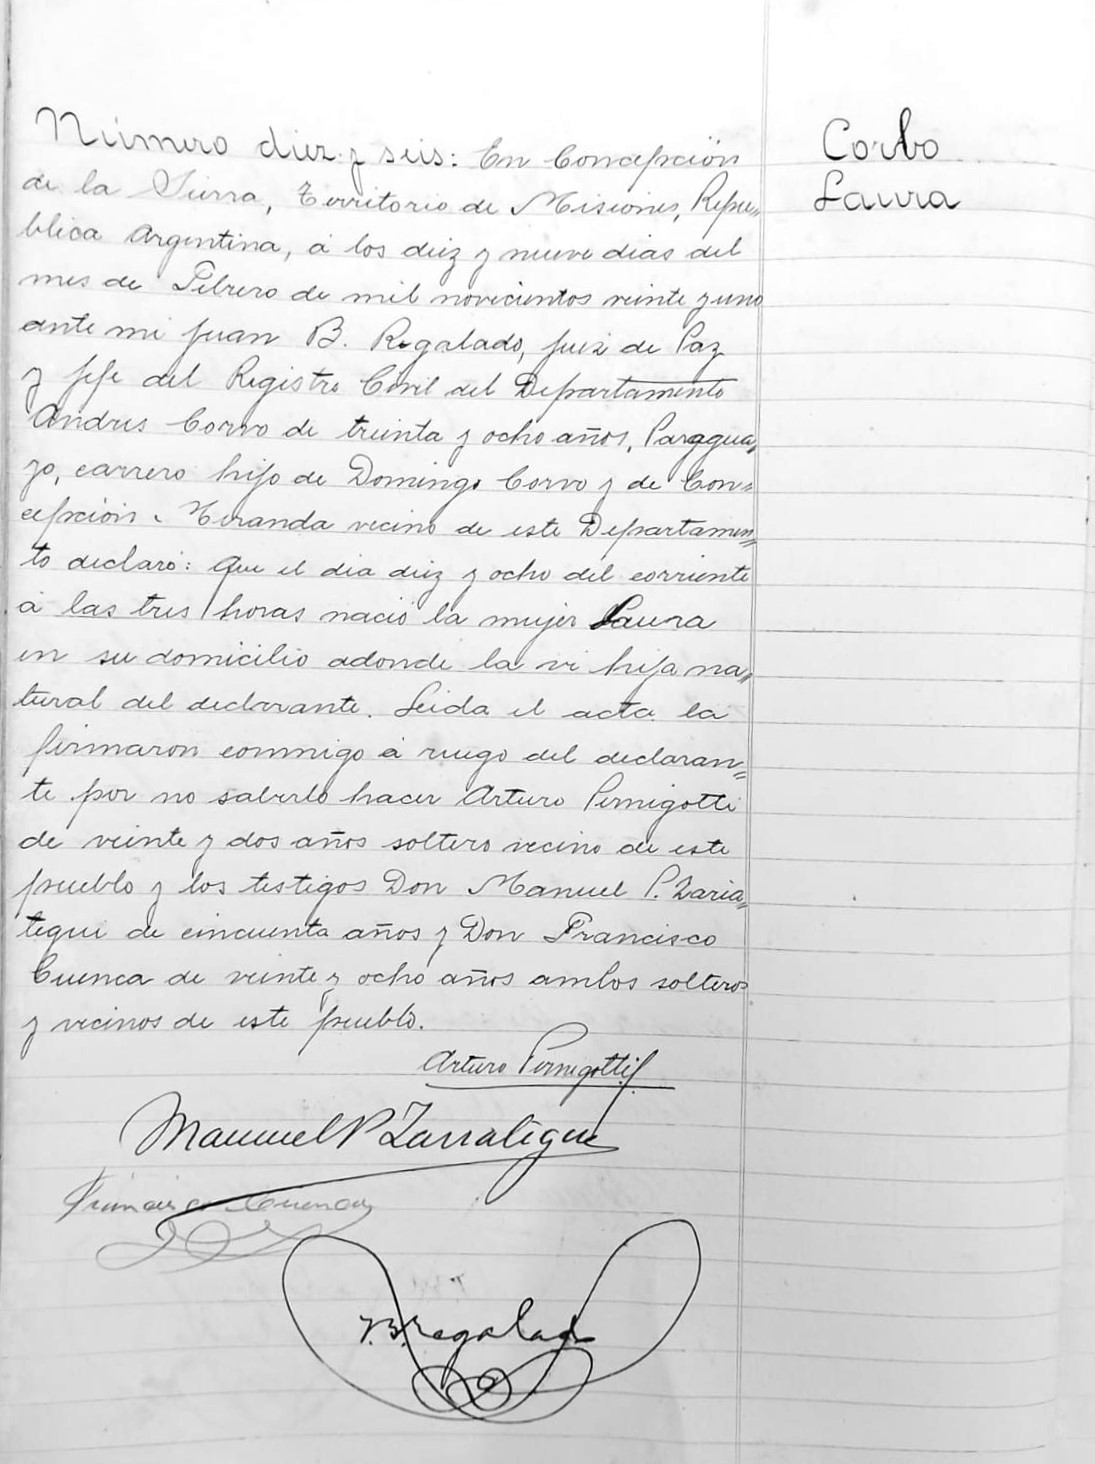 Número diez y seis: En Concepción
de la Sierra, Territorio de Misiones, Repu=
blica Argentina, á los diez y nueve dias del
mes de Febrero de mil novecientos veinte y uno
ante mi Juan B. Regalado, Juez de Paz
y Jefe del Registro Civil del Departamento
Andres Corvo de treinta y ocho años, Paragua=
yo, carrero hijo de Domingo Corvo y de Con=
cepción Miranda vecino de este Departamen=
to declaró: Que el dia diez y ocho del corriente
á las tres horas nació la mujer Laura
en su domicilio adonde la vi hija na=
tural del declarante. Leida el acta la
firmaron conmigo á ruego del declaran=
te por no saberlo hacer Arturo Pernigotti
de veinte y dos años soltero vecino de este
pueblo y los testigos Don Manuel P. Zaria=
tegui de cincuenta años y Don Francisco
Cuenca de veinte y ocho años ambos solteros
y vecinos de este pueblo.
Corbo
Laura
Arturo Pernigotti
Manuel P Zarrategui
Francisco Cuenca
J.B. Regalado